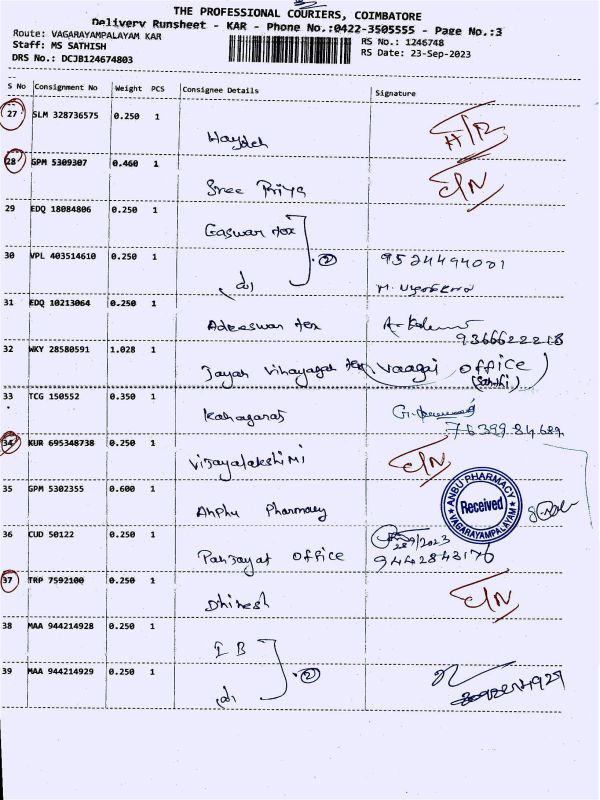 THE PROFESSIONAL COURIERS, COIMBATORE
Delivery Runsheet - KAR - Phone No.:0422-3505555 - Page No.:3
Route: VAGARAYAMPALAYAM KAR
RS No.: 1246748
Staff: MS SATHISH
RS Date: 23-Sep-2023
DRS No.: DCJB124674803
S No Consignment No Weight PCS Consignee Details Signature
27 SLM 328736575 0.250 1
28 GPM 5309307 0.460 1 C/N
Sree Priya
29 EDQ 18084806 0.250 1
Gaswar tex
30 VPL 403514610 0.250 1 (2) 9524494001
31 EDQ 10213064 0.250 1
Adeeswar tex
9366622218
32 WKY 28580591 1.028 1
Vinayagah tex (Vaagai office)
33 TCG 150552 0.350 1
Kanagaraj
34 KUR 695348738 0.250 1 C/N
Vijayalakshimi
35 GPM 5302355 0.600 1
ANBU PHARMACY
Received
VAGARAYAMPALAYAM
Anphu Pharmacy
36 CUD 50122 0.250 1
Panjayat office 9442843176
37 TRP 7592100 0.250 1 C/N
Dhinesh
38 MAA 944214928 0.250 1
E B
39 MAA 944214929 0.250 1 (2)